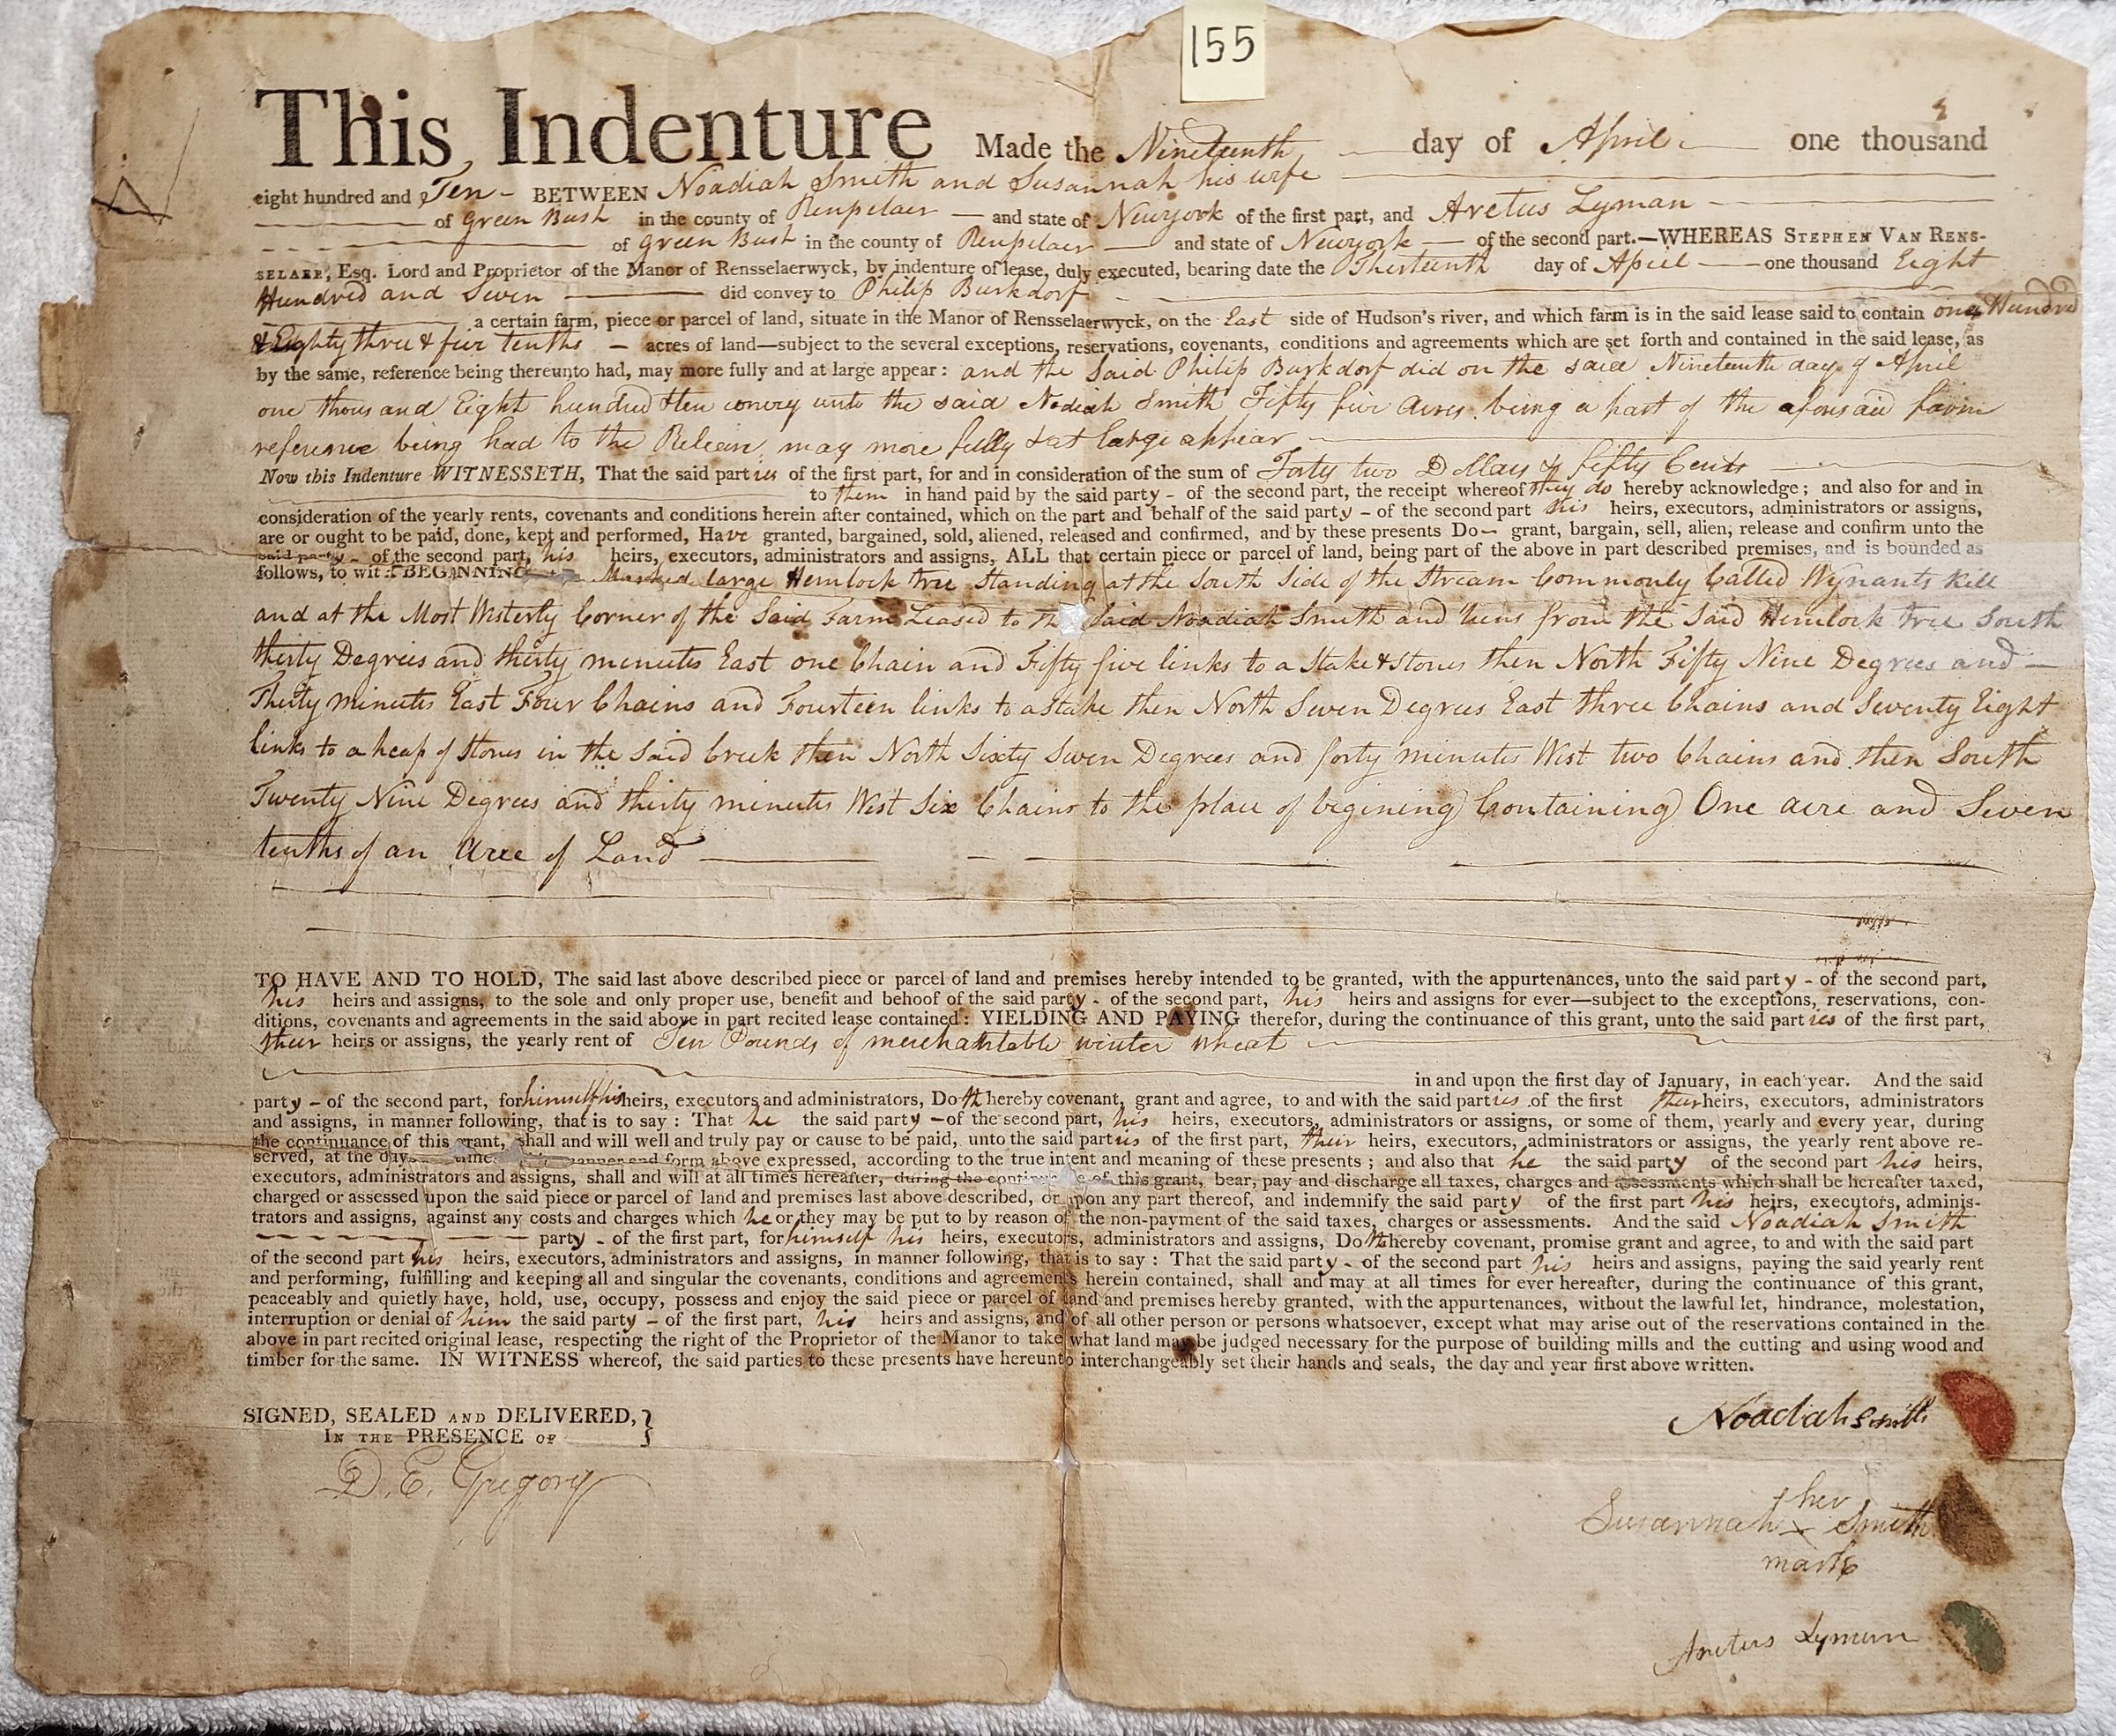 155
This Indenture Made the Nineteenth day of April one thousand
eight hundred and Ten - BETWEEN Noadiah Smith and Susannah his wife
of Green Bush in the county of Renselaer — and state of Newyork of the first part, and Aretus Lyman
of Green Bush in the county of Renselaer — and state of Newyork — of the second part.—WHEREAS STEPHEN VAN RENS-
SELAER, Esq. Lord and Proprietor of the Manor of Rensselaerwyck, by indenture of lease, duly executed, bearing date the Thirteenth day of April — one thousand Eight
Hundred and Seven — did convey to Philip Burkdorf
a certain farm, piece or parcel of land, situate in the Manor of Rensselaerwyck, on the East side of Hudson's river, and which farm is in the said lease said to contain one Hundred
& Eighty three & five tenths — acres of land—subject to the several exceptions, reservations, covenants, conditions and agreements which are set forth and contained in the said lease, as
by the same, reference being thereunto had, may more fully and at large appear: and the Said Philip Burkdorf did on the said Nineteenth day of April
one thousand Eight hundred & ten convey unto the said Nodiah Smith Fifty five Acres being a part of the aforesaid farm
reference being had to the may more fully & at large appear
Now this Indenture WITNESSETH, That the said parties of the first part, for and in consideration of the sum of Forty two Dollars & fifty Cents
to them in hand paid by the said party - of the second part, the receipt whereof they do hereby acknowledge; and also for and in
consideration of the yearly rents, covenants and conditions herein after contained, which on the part and behalf of the said party - of the second part his heirs, executors, administrators or assigns,
are or ought to be paid, done, kept and performed, Have granted, bargained, sold, aliened, released and confirmed, and by these presents Do — grant, bargain, sell, alien, release and confirm unto the
said party - of the second part, his heirs, executors, administrators and assigns, ALL that certain piece or parcel of land, being part of the above in part described premises, and is bounded as
follows, to wit: BEGINNING Marked large Hemlock tree Standing at the South Side of the Stream Commonly Called Wynants Kill
and at the Most Westerly Corner of the Said Farm Leased to the Said Noadiah Smith and runs from the Said Hemlock tree South
thirty Degrees and thirty minutes East one Chain and Fifty five links to a Stake & Stones then North Fifty Nine Degrees and —
Thirty minutes East Four Chains and Fourteen links to a Stake then North Seven Degrees East three Chains and Seventy Eight
links to a heap of Stones in the Said Creek then North Sixty Seven Degrees and forty minutes West two Chains and then South
Twenty Nine Degrees and thirty minutes West Six Chains to the place of begining Containing One acre and Seven
tenths of an Acre of Land
TO HAVE AND TO HOLD, The said last above described piece or parcel of land and premises hereby intended to be granted, with the appurtenances, unto the said party - of the second part,
his heirs and assigns, to the sole and only proper use, benefit and behoof of the said party - of the second part, his heirs and assigns for ever—subject to the exceptions, reservations, con-
ditions, covenants and agreements in the said above in part recited lease contained: YIELDING AND PAYING therefor, during the continuance of this grant, unto the said parties of the first part,
their heirs or assigns, the yearly rent of Ten Pounds of merchantable winter wheat
in and upon the first day of January, in each year. And the said
party - of the second part, for himself his heirs, executors and administrators, Doth hereby covenant, grant and agree, to and with the said parties of the first their heirs, executors, administrators
and assigns, in manner following, that is to say: That he the said party - of the second part, his heirs, executors, administrators or assigns, or some of them, yearly and every year, during
the continuance of this grant, shall and will well and truly pay or cause to be paid, unto the said parties of the first part, their heirs, executors, administrators or assigns, the yearly rent above re-
served, at the days time manner and form above expressed, according to the true intent and meaning of these presents; and also that he the said party of the second part his heirs,
executors, administrators and assigns, shall and will at all times hereafter, during the continuance of this grant, bear, pay and discharge all taxes, charges and assessments which shall be hereafter taxed,
charged or assessed upon the said piece or parcel of land and premises last above described, or upon any part thereof, and indemnify the said party of the first part his heirs, executors, adminis-
trators and assigns, against any costs and charges which he or they may be put to by reason of the non-payment of the said taxes, charges or assessments. And the said Noadiah Smith
party - of the first part, for himself his heirs, executors, administrators and assigns, Doth hereby covenant, promise grant and agree, to and with the said part
of the second part his heirs, executors, administrators and assigns, in manner following, that is to say: That the said party - of the second part his heirs and assigns, paying the said yearly rent
and performing, fulfilling and keeping all and singular the covenants, conditions and agreements herein contained, shall and may at all times for ever hereafter, during the continuance of this grant,
peaceably and quietly have, hold, use, occupy, possess and enjoy the said piece or parcel of land and premises hereby granted, with the appurtenances, without the lawful let, hindrance, molestation,
interruption or denial of him the said party - of the first part, his heirs and assigns, and of all other person or persons whatsoever, except what may arise out of the reservations contained in the
above in part recited original lease, respecting the right of the Proprietor of the Manor to take what land may be judged necessary for the purpose of building mills and the cutting and using wood and
timber for the same. IN WITNESS whereof, the said parties to these presents have hereunto interchangeably set their hands and seals, the day and year first above written.
SIGNED, SEALED AND DELIVERED,}
IN THE PRESENCE OF
D. E. Gregory
Noadiah Smith
her
Susannah x Smith
mark
Aretus Lyman